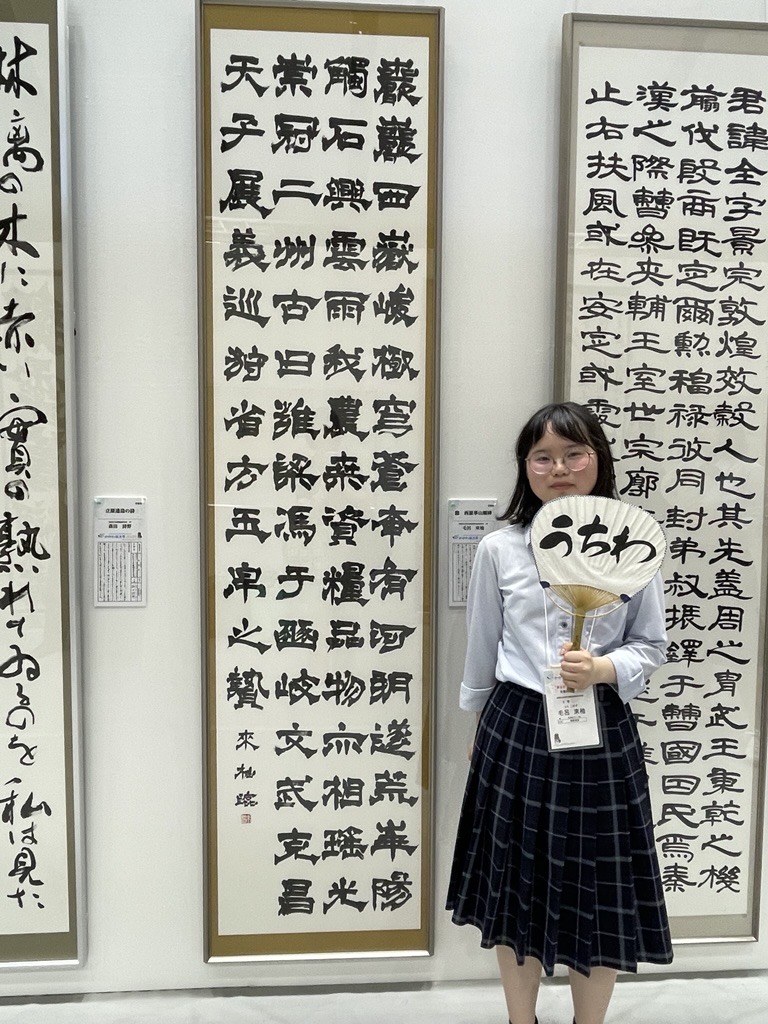 君諱全字景完敦煌效穀人也其先蓋周之胄武王秉乾之機
翦伐殷商既定爾勲福祿攸同封弟叔振鐸于曹國因氏焉秦
漢之際曹參夾輔王室世宗廓
止右扶風或在安定或處
巖巖西嶽峻極穹蒼奄有河朔遂荒崋陽
觸石興雲雨我農桒資糧品物亦相瑤光
崇冠二州古曰雍梁馮于豳岐文武克昌
天子展義巡狩省方玉帛之贄
來柚臨
林
高の木に赤い實の熟れてゐるのを私は見た
立原道造の詩
臨 西嶽華山廟碑
うちわ